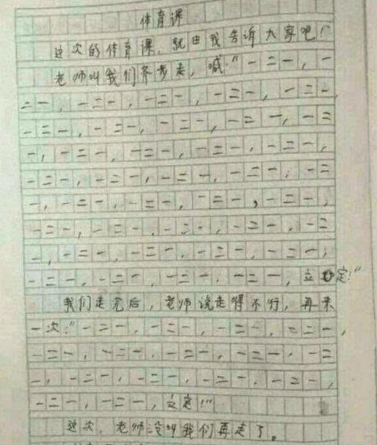 体育课
这次的体育课，就由我告诉大家吧！
老师叫我们齐步走，喊："一二一，一
二一，一二一，一二一，一二一，一二一，
一二一，一二一，一二一，一二一，一二
一，一二一，一二一，一二一，一二一，
一二一，一二一，一二一，一二一，一二
一，一二一，一二一，一二一，一二一，
一二一，一二一，一二一，一二一，一二
一，一二一，一二一，一二一，一二一，
一二一，一二一，一二一，一二一，立定！"
我们走完后，老师说走得不行，再来
一次："一二一，一二一，一二一，一二一，
一二一，一二一，一二一，一二一，一二
一，一二一，一二一，一二一，一二一，
一二一，一二一，立定！"
这次，老师没叫我们再走了。